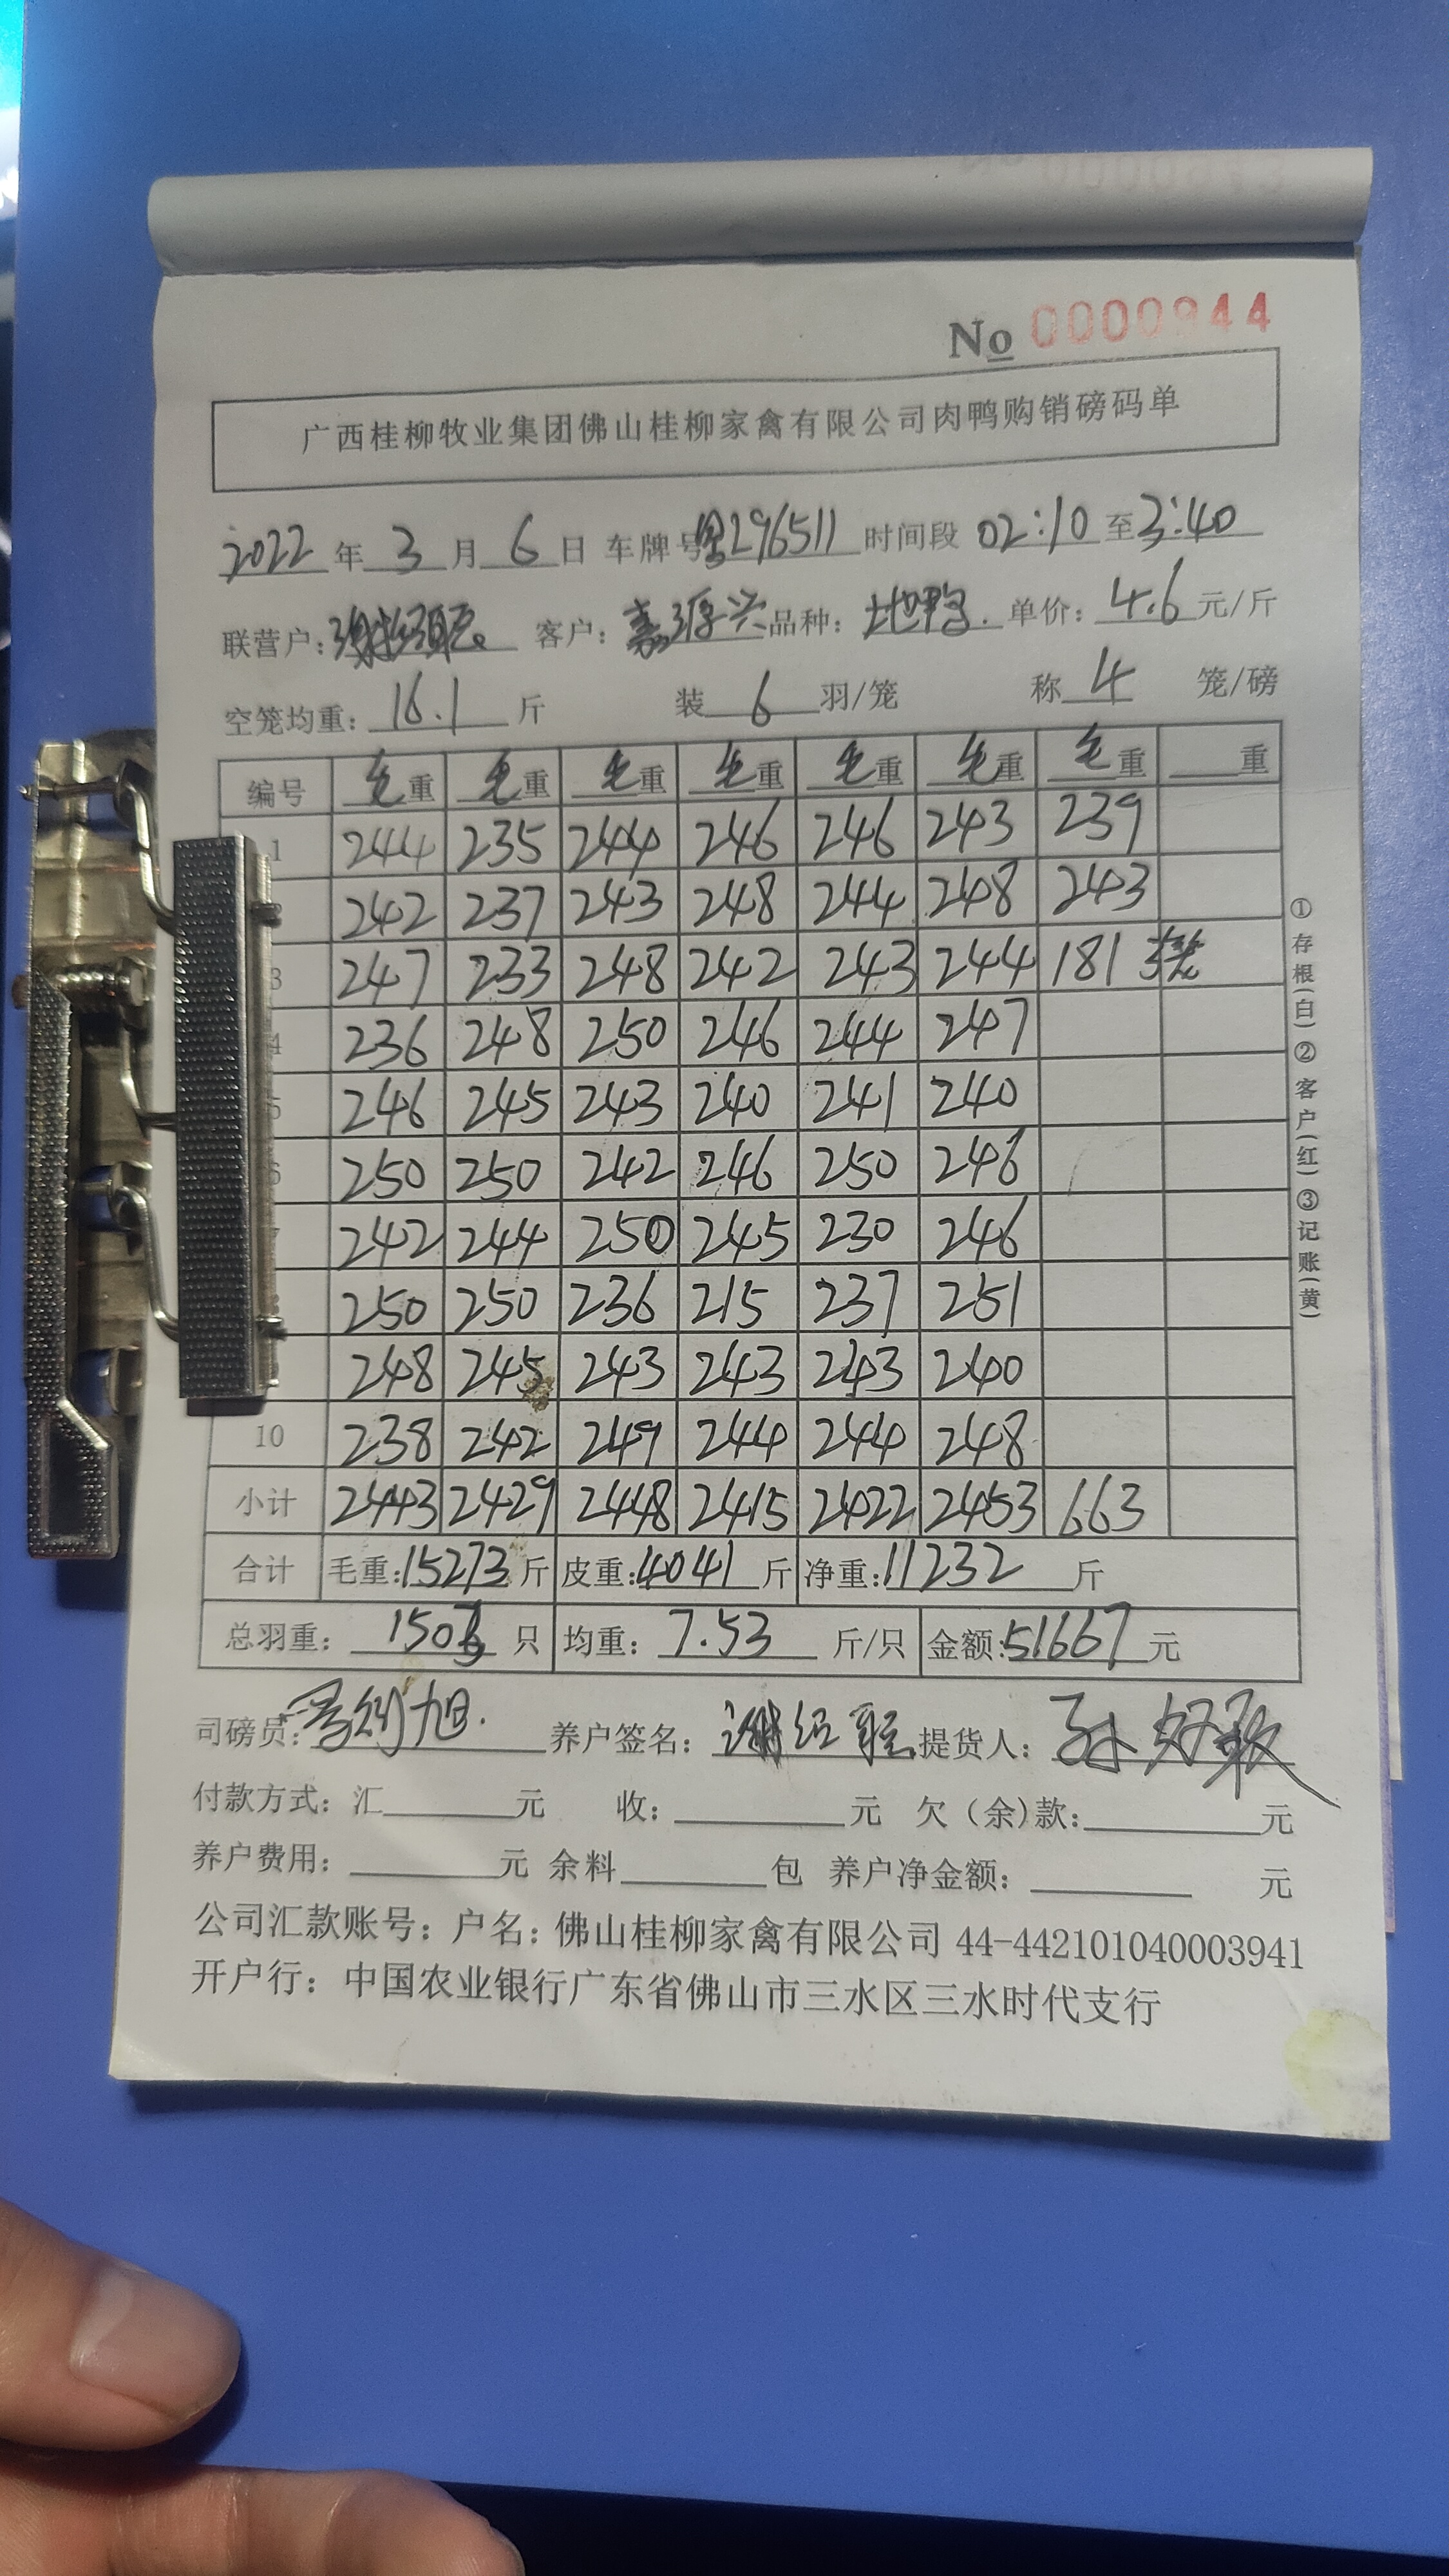 No 0000944
广西桂柳牧业集团佛山桂柳家禽有限公司肉鸭购销磅码单
2022 年 3 月 6 日 车牌号 296511 时间段 02:10 至 3:40
联营户: 客户: 嘉源兴 品种: 土鸭. 单价: 4.6 元/斤
空笼均重: 16.1 斤 装 6 羽/笼 称 4 笼/磅
编号 毛重 毛重 毛重 毛重 毛重 毛重 毛重 重
1 244 235 244 246 246 243 239
242 237 243 248 244 248 243
3 247 233 248 242 243 244 181 3笼
4 236 248 250 246 244 247
5 246 245 243 240 241 240
6 250 250 242 246 250 246
7 242 244 250 245 230 246
250 250 236 215 237 251
248 245 243 243 243 240
10 238 242 249 244 244 248
小计 2443 2429 2448 2415 2422 2453 663
合计 毛重:15273 斤 皮重:4041 斤 净重:11232 斤
总羽重: 1506 只 均重: 7.53 斤/只 金额:51667 元
司磅员: 旭. 养户签名: 谢 提货人: 孙
付款方式: 汇 元 收: 元 欠(余)款: 元
养户费用: 元 余料 包 养户净金额: 元
公司汇款账号: 户名: 佛山桂柳家禽有限公司 44-442101040003941
开户行: 中国农业银行广东省佛山市三水区三水时代支行
①存根(白)②客户(红)③记账(黄)